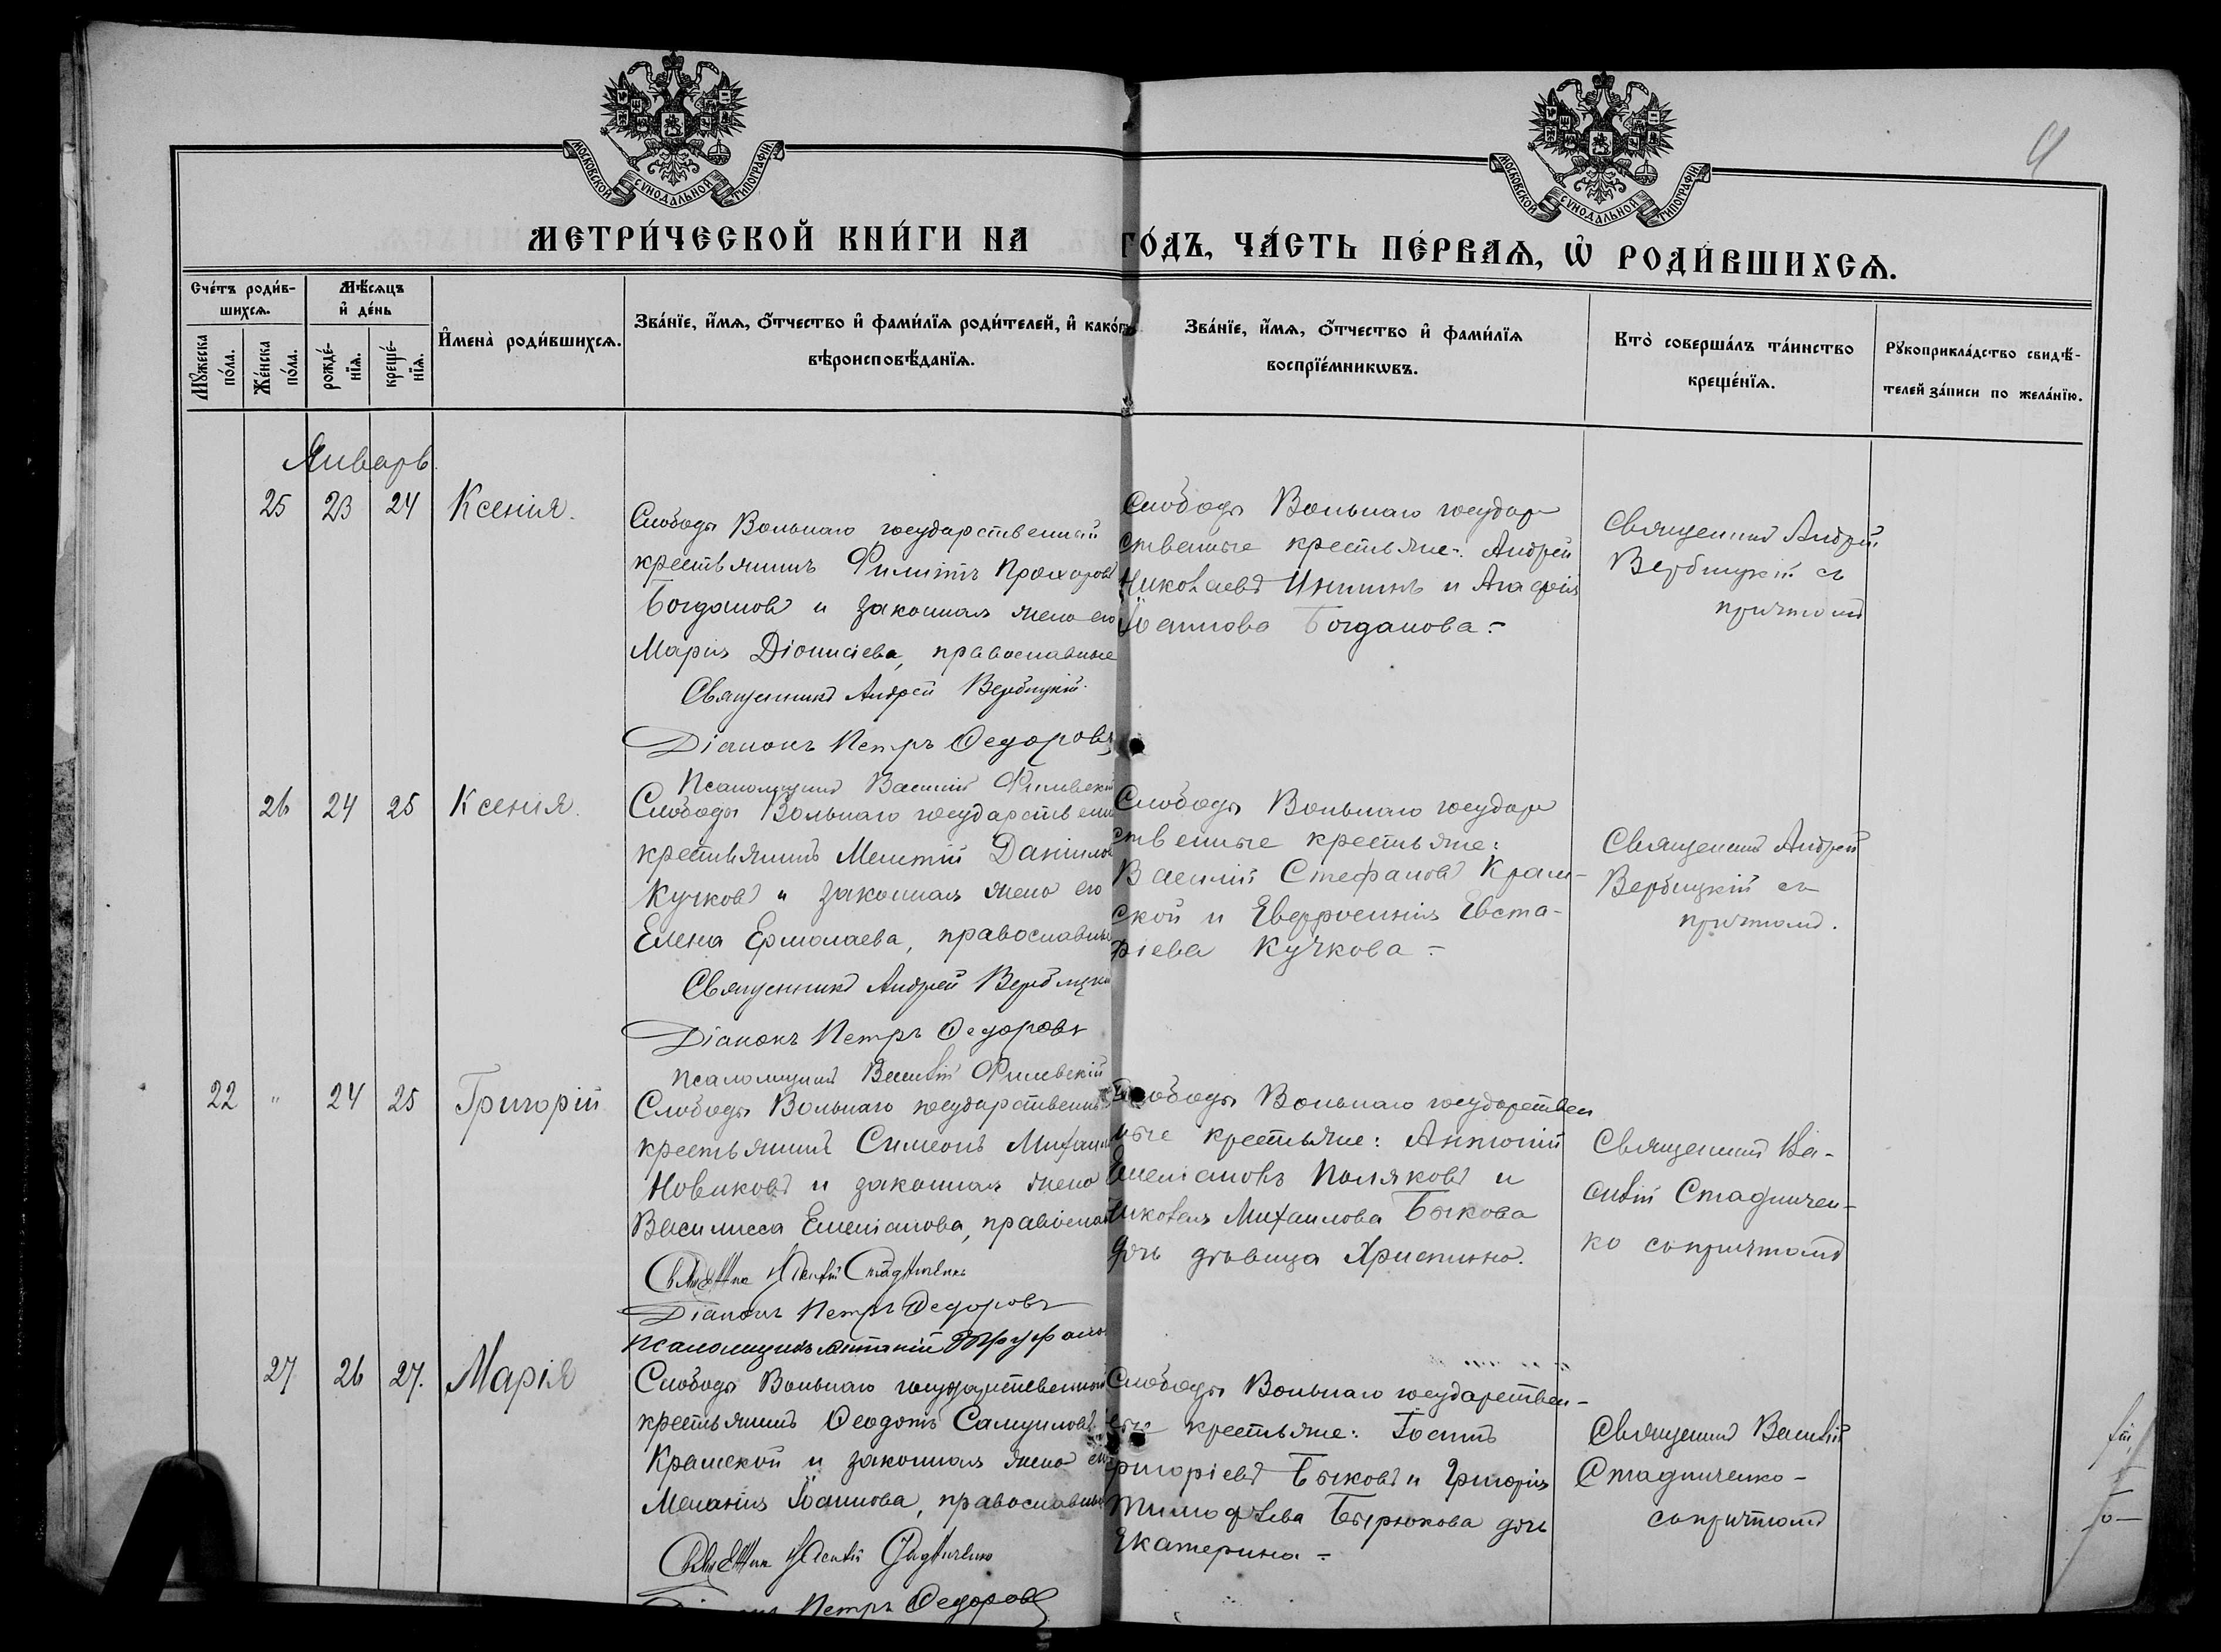 МОСКОВСКОЙ СѴНОДАЛЬНОЙ ТИПОГРАФІИ
МОСКОВСКОЙ СѴНОДАЛЬНОЙ ТИПОГРАФІИ
4
МЕТРИ́ЧЕСКОЙ КНИ́ГИ НА ГО́ДЪ, ЧА́СТЬ ПЕ́РВАѦ, Ѡ҆ РОДИ́ВШИХСѦ.
Сче́тъ роди́в-
шихсѧ.
Мꙋ́жеска по́ла.
Же́нска по́ла.
Мѣ́сѧцъ
и҆ де́нь
рожде́-
нїѧ.
креще́-
нїѧ.
И҆мена̀ роди́вшихсѧ.
Зва́нїе, и҆́мѧ, ѻ҆́тчество и҆ фами́лїѧ роди́телей, и҆ како́гѡ
вѣроисповѣ́данїѧ.
Зва́нїе, и҆́мѧ, ѻ҆́тчество и҆ фами́лїѧ
воспрїе́мникωвъ.
Кто̀ соверша́лъ та́инство
креще́нїѧ.
Рꙋкоприкла́дство свидѣ́-
телей за́писи по жела́нїю.
Январь
25 23 24 Ксенія.
Слободы Вольнаго государственный
крестьянинъ Филиппъ Прохоровъ
Богдановъ и законная жена его
Марія Діонисіева, православные
Священникъ Андрей Вербицкій.
Діаконъ Петръ Федоровъ
Псаломщикъ Василій Филевскій
Слободы Вольнаго государ
ственные крестьяне: Андрей
Николаевъ и Агафія
Іоаннова Богданова.-
Священникъ Андрей
Вербицкій съ
причтомъ
26 24 25 Ксенія.
Слободы Вольнаго государственн
крестьянинъ Мелетій Даніиловъ
Кучковъ и законная жена его
Елена Ермолаева, православные
Священникъ Андрей Вербицкій
Діаконъ Петръ Федоровъ
Псаломщикъ Василій Филевскій
Слободы Вольнаго государ
ственные крестьяне:
Василій Стефановъ Крам-
ской и Евфросинія Евста-
фіева Кучкова -
Священникъ Андрей
Вербицкій съ
причтомъ.
22 " 24 25 Григорій
Слободы Вольнаго государственный
крестьянинъ Симеонъ Михаил
Новиковъ и законная жена
Василисса Емеліанова, православ
Священникъ Василій Стадниченко
Діаконъ Петръ Федоровъ
Псаломщикъ
Слободы Вольнаго государствен
ные крестьяне: Антоній
Емеліановъ Поляковъ и
Николая Михаилова Быкова
дочь дѣвица Христина.
Священникъ Ва-
силій Стадничен-
ко съ причтомъ
27 26 27. Марія
Слободы Вольнаго государственный
крестьянинъ Ѳеодотъ Самуиловъ
Крамской и законная жена его
Меланія Іоаннова, православные
Священникъ Василій Стадниченко
Діаконъ Петръ Федоровъ
Слободы Вольнаго государствен-
ные крестьяне: Іоаннъ
Григоріевъ Быковъ и Григорія
Тимофѣева Бырюкова дочь
Екатерина -
Священникъ Василій
Стадниченко -
съ причтомъ